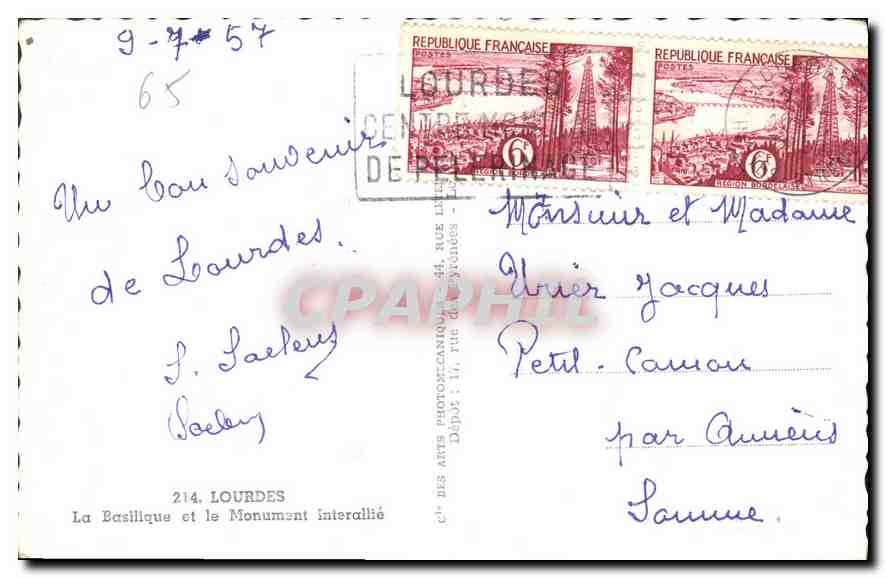 9-7-57
65
Un bon souvenir
de Lourdes.
214. LOURDES
La Basilique et le Monument Interallié
Cie DES ARTS PHOTOMECANIQUES 44, RUE
Dépôt : 17, rue des Pyrénées
REPUBLIQUE FRANÇAISE
POSTES
6F
REGION BORDELAISE
REPUBLIQUE FRANÇAISE
POSTES
6F
REGION BORDELAISE
LOURDES
CENTRE
DE PELERINAGE
Monsieur et Madame
Jacques
Petit-Camon
par Amiens
Somme.
CPAPHIL